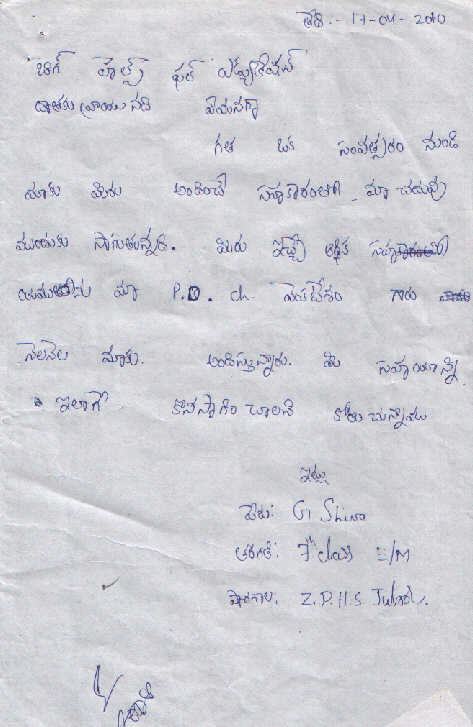 తేది :- 17-04-2010
బిగ్ హెల్ప్ ఫర్ ఎడ్యుకేషన్
దాతకు వ్రాయు నది ఏమనగా
గత ఒక సంవత్సరం నుండి
మాకు మీరు అందించే సహకారంతో మా చదువు
ముందుకు సాగుతున్నది. మీరు ఇచ్చే ఆర్థిక
మా P.D. ch. వెంకటేశం గారు
నెలనెల మాకు. అందిస్తున్నారు. ఈ సహాయాన్ని
ఇలాగే కొనసాగించాలని కోరు చున్నాను
ఇట్లు
పేరు: G. Shiva
తరగతి: E/M
పాఠశాల. Z.P.H.S